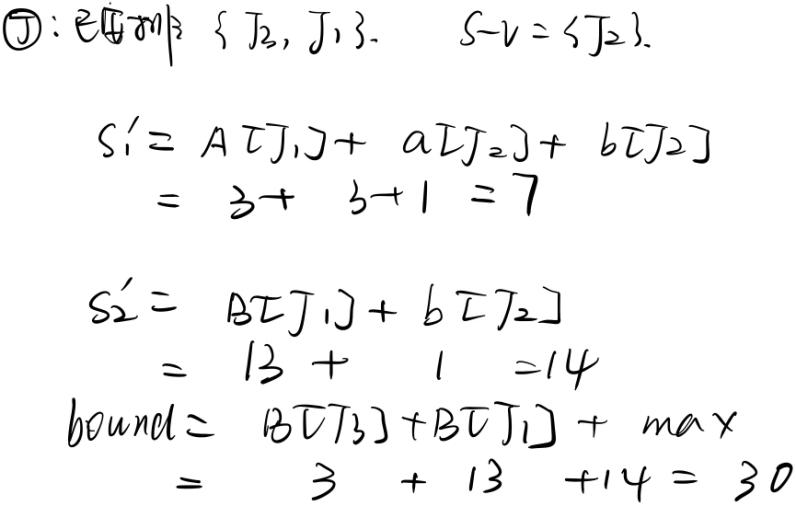 ⑦: 已安排 { J3, J1 }. S-V = { J2 }.
S1' = A[J1] + a[J2] + b[J2]
= 3 + 3 + 1 = 7
S2' = B[J1] + b[J2]
= 13 + 1 = 14
bound = B[J3] + B[J1] + max
= 3 + 13 + 14 = 30